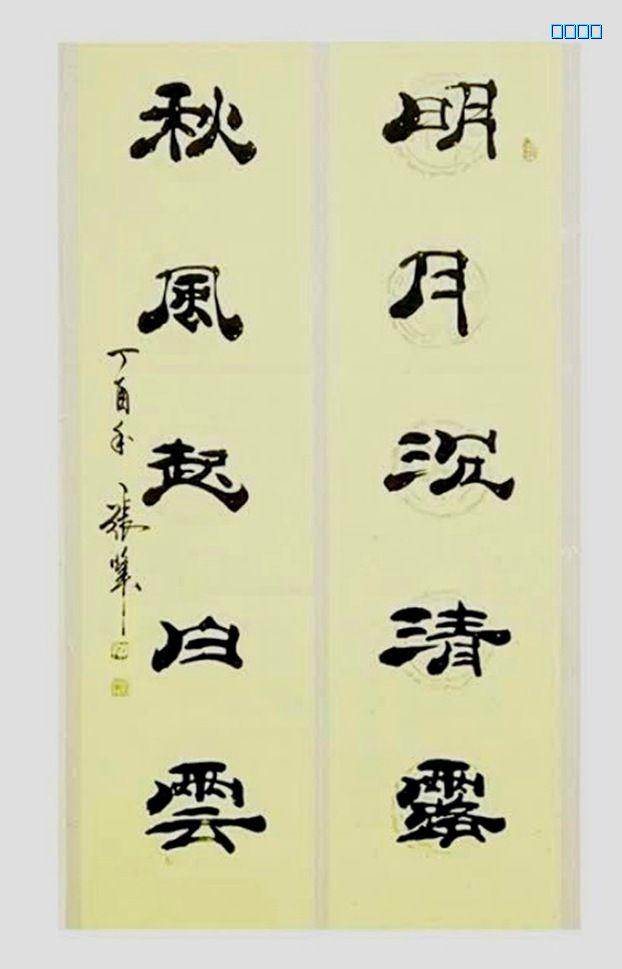 明月沉清露
秋風起白雲
丁酉年 張華